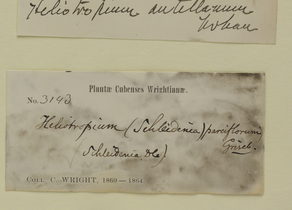 Heliotropium antillanum
Urban
Plantæ Cubenses Wrightianæ.
No. 3143
Heliotropium (Schleidenia) parciflorum
Griseb.
Schleidenia
Coll. C. WRIGHT, 1860—1864.